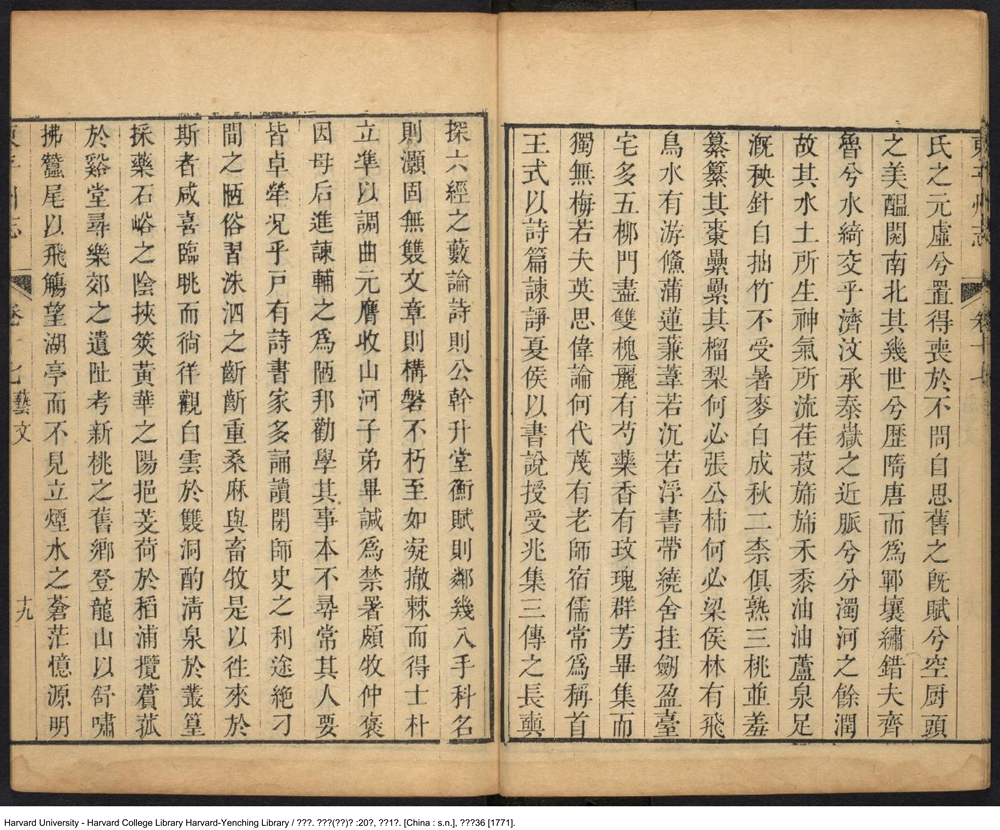 東平州志 卷十七
氏之元虛兮置得喪於不問自思舊之旣賦兮空厨頭
之美醞閱南北其幾世兮歷隋唐而爲鄆壤繡錯夫齊
魯兮水綺交乎濟汶承泰嶽之近脈兮分濁河之餘潤
故其水土所生神氣所流荏菽斾斾禾黍油油蘆泉足
漑秧針自抽竹不受暑麥自成秋二柰俱熟三桃並羞
纂纂其棗纍纍其榴梨何必張公柿何必梁侯林有飛
鳥水有游鯈蒲蓮蒹葦若沉若浮書帶繞舍挂劒盈臺
宅多五柳門盡雙槐麗有芍藥香有玫瑰群芳畢集而
獨無梅若夫英思偉論何代蔑有老師宿儒常爲稱首
王式以詩篇諫諍夏侯以書說授受兆集三傳之長輿
探六經之藪論詩則公幹升堂衡賦則鄰幾入手科名
則灝固無雙文章則構磐不朽至如凝撤棘而得士朴
立凖以調曲元膺收山河子弟畢諴爲禁署頗牧仲褒
因母后進諫輔之爲陋邦勸學其事本不尋常其人要
皆卓犖況乎戶有詩書家多誦讀閉師史之利途絶刁
間之陋俗習洙泗之齗齗重桑麻與畜牧是以徃來於
斯者咸喜臨眺而徜徉觀白雲於雙洞酌清泉於叢篁
採藥石峪之陰挾筴黃華之陽挹芰荷於稻浦攬薲菰
於谿堂尋樂郊之遺阯考新桃之舊鄉登龍山以舒嘯
拂蠶尾以飛觴望湖亭而不見立煙水之蒼茫憶源明
東平州志 卷十七 藝文 十九
Harvard University - Harvard College Library Harvard-Yenching Library / ???. ???(??)? :20?, ??1?. [China : s.n.], ???36 [1771].